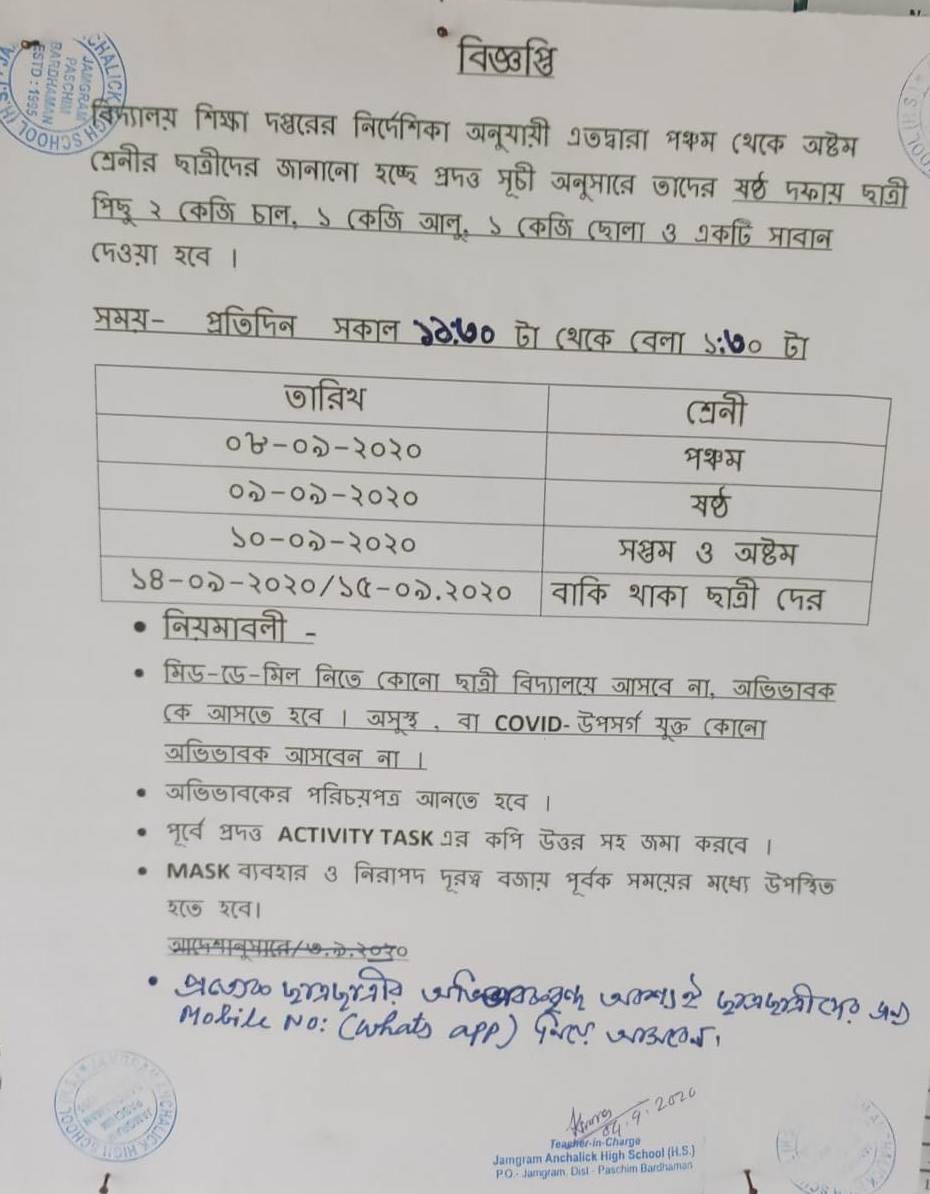 বিজ্ঞপ্তি
বিদ্যালয় শিক্ষা দপ্তরের নির্দেশিকা অনুযায়ী এতদ্বারা পঞ্চম থেকে অষ্টম
শ্রেনীর ছাত্রীদের জানানো হচ্ছে প্রদত্ত সূচী অনুসারে তাদের ষষ্ঠ দফায় ছাত্রী
পিছু ২ কেজি চাল, ১ কেজি আলু, ১ কেজি ছোলা ও একটি সাবান
দেওয়া হবে ।
সময়- প্রতিদিন সকাল ১১:৩০ টা থেকে বেলা ১:৩০ টা
তারিখ শ্রেনী
০৮-০৯-২০২০ পঞ্চম
০৯-০৯-২০২০ ষষ্ঠ
১০-০৯-২০২০ সপ্তম ও অষ্টম
১৪-০৯-২০২০/১৫-০৯.২০২০ বাকি থাকা ছাত্রী দের
• নিয়মাবলী -
• মিড-ডে-মিল নিতে কোনো ছাত্রী বিদ্যালয়ে আসবে না, অভিভাবক
কে আসতে হবে । অসুস্থ , বা COVID- উপসর্গ যুক্ত কোনো
অভিভাবক আসবেন না ।
• অভিভাবকের পরিচয়পত্র আনতে হবে ।
• পূর্বে প্রদত্ত ACTIVITY TASK এর কপি উত্তর সহ জমা করবে ।
• MASK ব্যবহার ও নিরাপদ দূরত্ব বজায় পূর্বক সময়ের মধ্যে উপস্থিত
হতে হবে।
আদেশানুসারে/৩.৯.২০২০
• প্রত্যেক ছাত্রছাত্রীর অভিভাবকবৃন্দ অবশ্যই ছাত্রছাত্রীদের জন্য
Mobile No: (Whats app) নিয়ে আসবেন।
04.9.2020
Teacher-in-Charge
Jamgram Anchalick High School (H.S.)
P.O.- Jamgram, Dist - Paschim Bardhaman